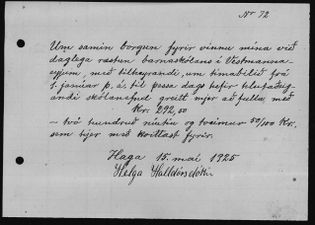 Nr 72
Um samin borgun fyrir vinnu mína við
daglega ræstun barnaskólans í Vestmanna-
eyjum, með tilheyrandi, um tímabilið frá
1. janúar þ. á. til þessa dags hefir hlutaðeig-
andi skólanefnd greitt mjer að fullu með
Kr: 292,50
— tvö hundruð níutíu og tveimur 50/100 Kr.
sem hjer með kvittast fyrir.
Haga 15. maí 1925
Helga Halldórsdóttir